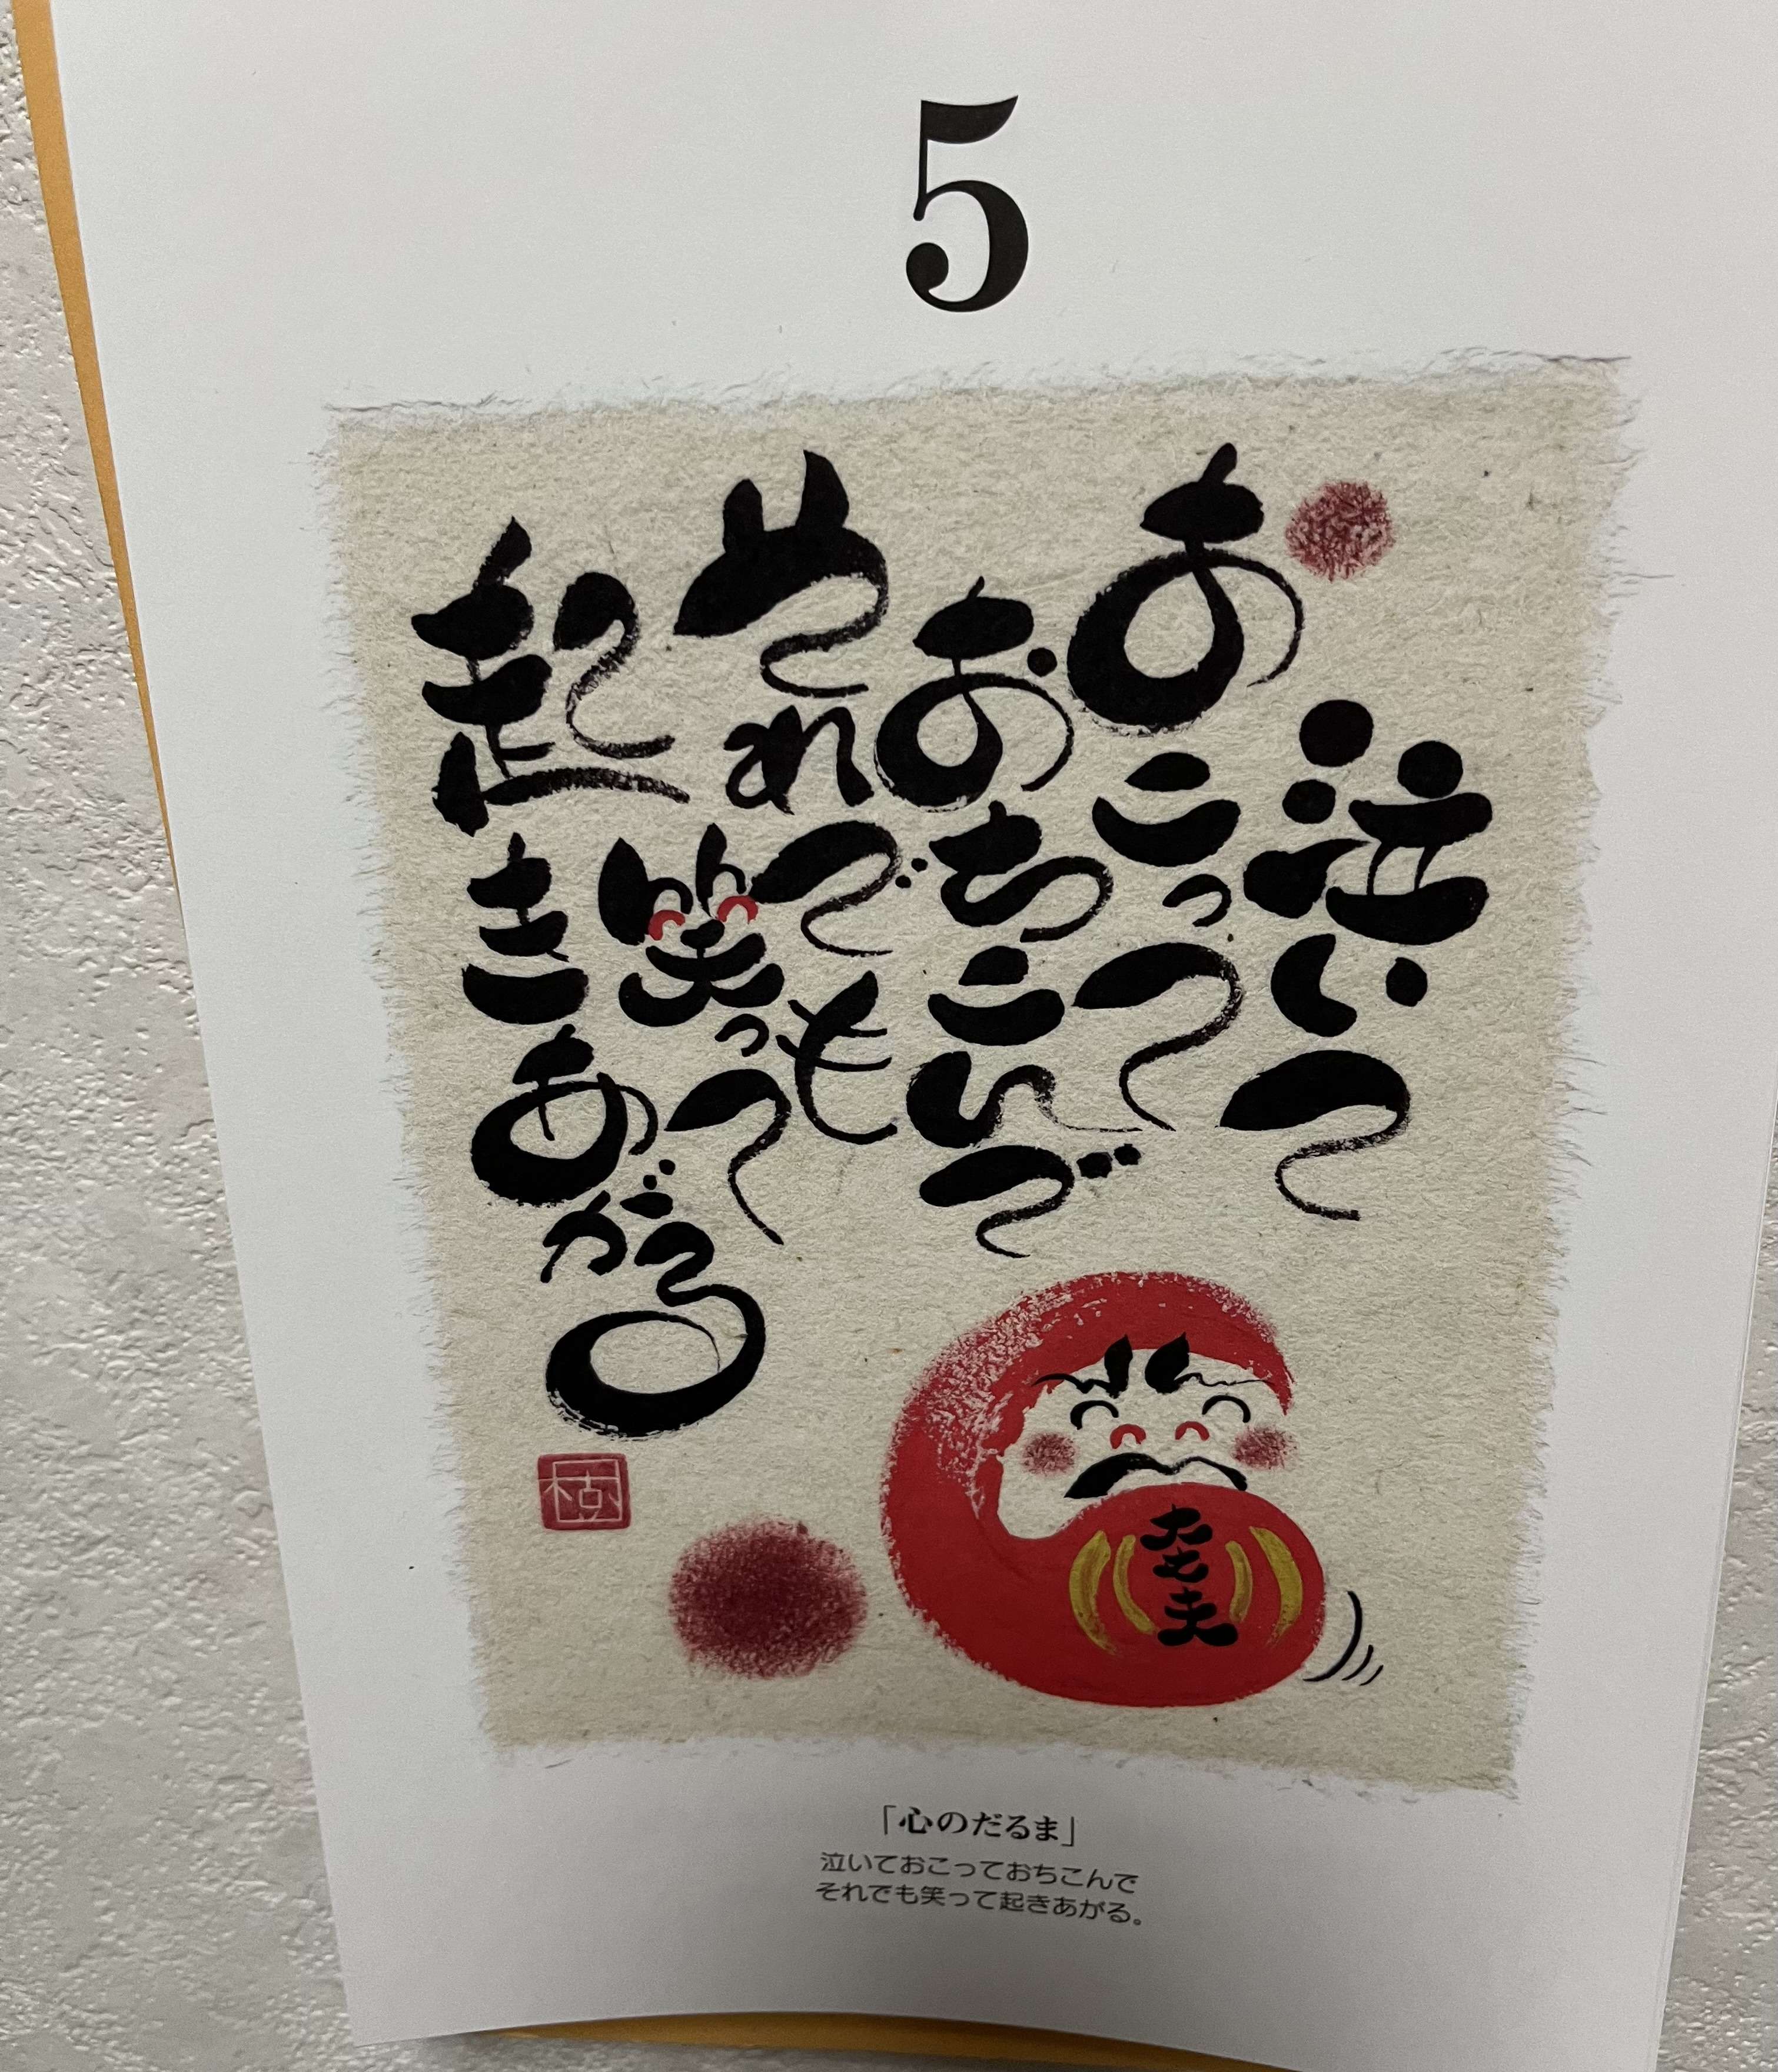 5
泣いて
おこって
おちこんで
それでも
笑って
起きあがる
「心のだるま」
泣いておこっておちこんで
それでも笑って起きあがる。